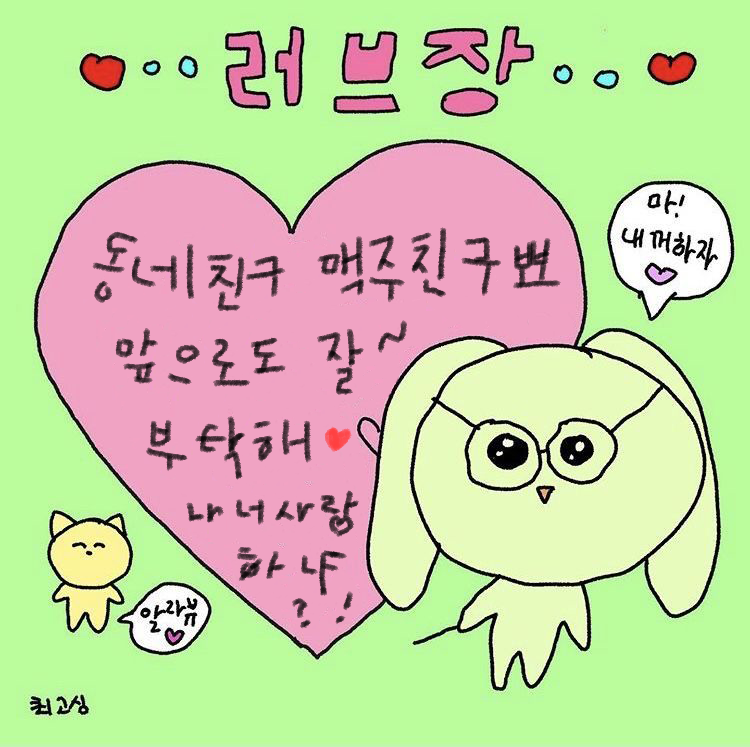 러브장
동네친구 맥주친구뽀
앞으로도 잘~
부탁해
나 너 사랑
하냐
?!
마!
내꺼하자
알라뷰
최고심